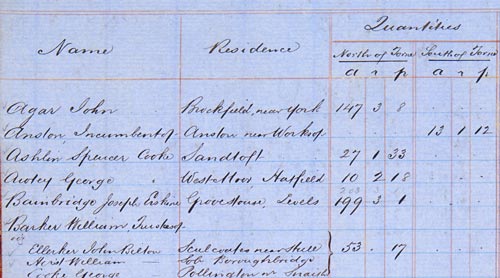 Quantities
Name Residence North of Torne South of Torne
a r p a r p
Agar John Brockfield, near York 147 3 8
Anston Incumbent of Anston near Worksop 13 1 12
Ashlin Spencer Cooke Sandtoft 27 1 33
George West Moor Hatfield 10 2 18
Bainbridge Joseph Erskine Grove House, Levels 199 3 1
Barker William Trustees of
Ellerker John Bilton Sculcoates near Hull 53 . 17
William Boroughbridge
Cooke George Pollington nr Snaith